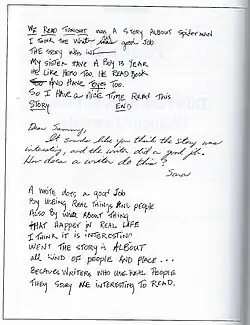 WE READ TONIGHT WAS A STORY ALBOUT SPIDERMAN
I THINK THE WRITER good JOB
THE STORY WAS INT
MY SISTER HAVE A BOY IS YEAR
HE LIKE HERO TOO. HE READ BOOK
AND HAVE TOYES TOO.
SO I HAVE A NICE TIME READ THIS
STORY END
Dear Sammy,
It sounds like you think the story was
interesting, and the writer did a good job.
How does a writer do this?
Sara
A WRITE DOES A good JOB
BY USEING REAL THINGS AND PEOPLE
ALSO BY WRITE ABOUT THING
THAT HAPPEN IN REAL LIFE
I THINK IT IS INTERESTING
WENT THE STORY IS ALBOUT
all KIND OF PEOPLE AND PLACE...
BECAUES WRITERS WHO USE REAL PEOPLE
THEY STORY ARE INTERESTING TO READ.